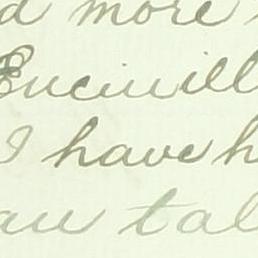 d more
Eucinill
I have h
au tal